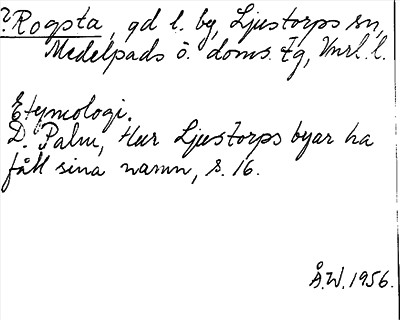 ? Rogsta, gd l. by, Ljustorps sn,
Medelpads ö. doms. tg, Vnrl. l.
Etymologi.
D. Palm, Hur Ljustorps byar ha
fått sina namn, s. 16.
Å.W. 1956.